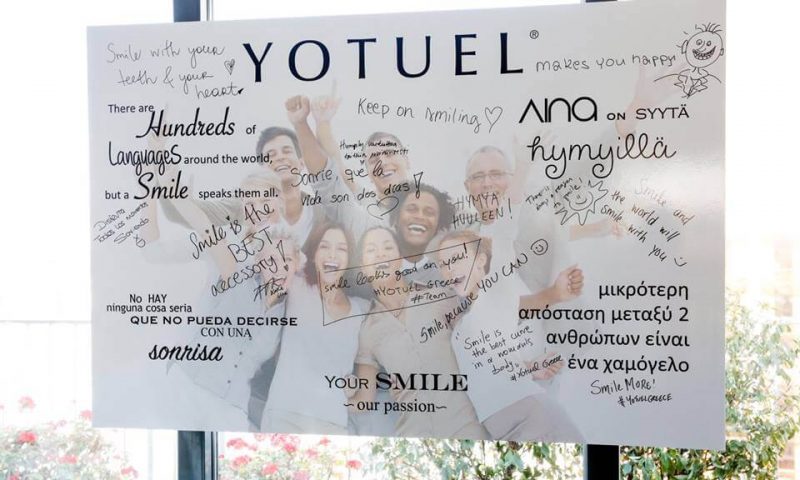 YOTUEL®
Smile with your
teeth & your
heart
makes you happy
There are
Hundreds of
Languages around the world,
but a Smile speaks them all.
Keep on smiling
AINA ON SYYTÄ
hymyillä
Sonríe, que la
vida son dos días!
HYMYÄ
HUULEEN!
There is
always a reason
to smile!
Smile and
the world will
smile with you
Disfruta
todos los momentos
Sonriendo
Smile is the
BEST
accessory!
smile looks good on you!
#YOTUEL Greece
#Team
Smile, because you CAN
No HAY
ninguna cosa seria
QUE NO PUEDA DECIRSE
CON UNA
sonrisa
μικρότερη
απόσταση μεταξύ 2
ανθρώπων είναι
ένα χαμόγελο
"Smile is
the best curve
in a woman's
body"
#Yotuel Greece
YOUR SMILE
~our passion~
Smile MORE!
#YOTUELGREECE